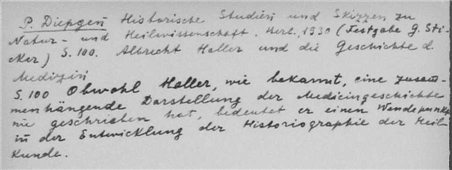 P. Diepgen Historische Studien und Skizzen zu
Natur- und Heilwissenschaft. Berl. 1930 (Festgabe G. Sti-
cker) S. 100. Albrecht Haller und die Geschichte d.
Medizin
S. 100 Obwohl Haller, wie bekannt, eine zusam-
menhängende Darstellung der Medicingeschichte
nie geschrieben hat, bedeutet er einen Wendepunkt
in der Entwicklung der Historiographie der Heil-
kunde.